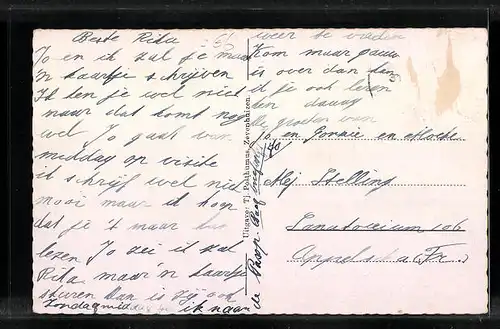 Beste Rita
Jo en ik zal je maar
'n kaartje schrijven
Ik ken je wel niet
maar dat komt nog
wel Jo gaat van
middag op visite
ik schrijf wel niet
mooi maar ik hoop
dat je 't maar kan
lezen Jo zei ik zal
Rita maar 'n kaartje
sturen dan is zij ook
Zondagmiddag ik naar
weer te vreden
Kom maar gauw
is over dan kan
ik je ook leren
ken daaag
de groeten van
Jo en en Moeke
Mej Stelling
Sanatorium
Appelscha (Fr.)
Uitgave: Tj. Posthumus, Zevenhuizen